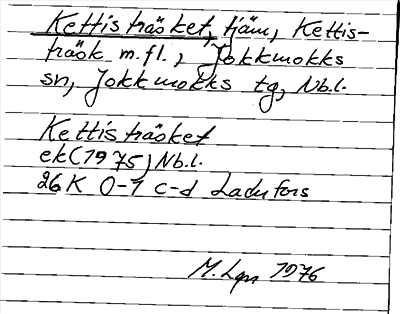 Kettisträsket, tjärn, Kettis-
träsk m.fl., Jokkmokks
sn, Jokkmokks tg, Nb.l.
Kettisträsket
ek (1975) Nb.l.
26K 0-1 c-d Ladufors
M. Lgn 1976